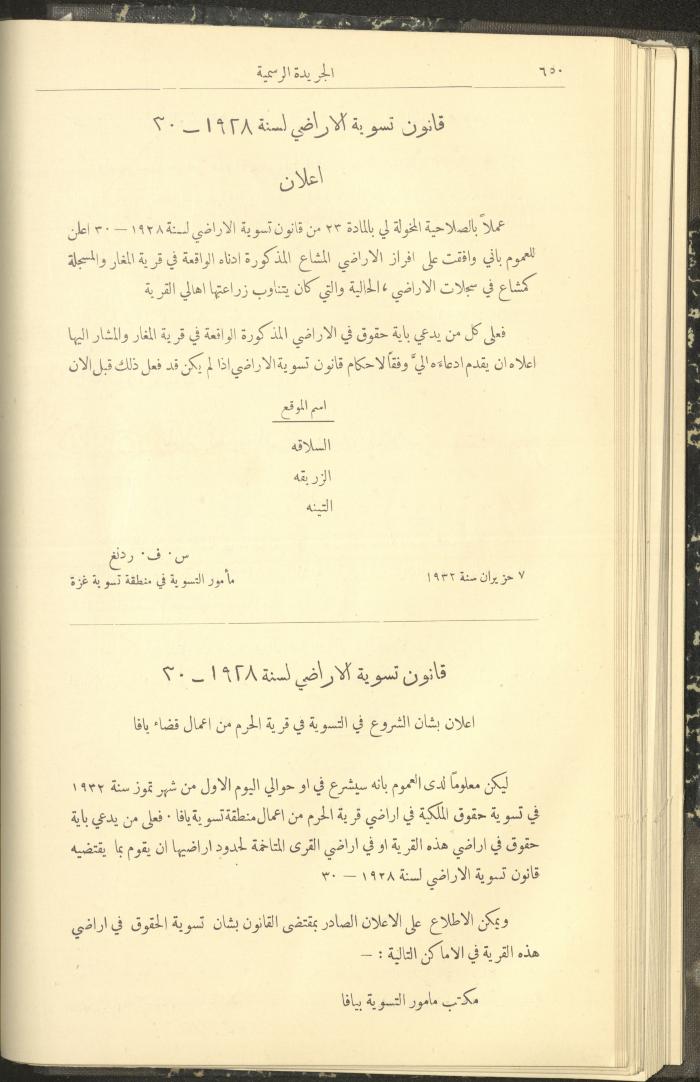 ٦٥٠
الجريدة الرسمية
قانون تسوية الاراضي لسنة ١٩٢٨ — ٣٠
اعلان
عملاً بالصلاحية المخولة لي بالمادة ٢٣ من قانون تسوية الاراضي لسنة ١٩٢٨ — ٣٠ اعلن
للعموم باني وافقت على افراز الاراضي المشاع المذكورة ادناه الواقعة في قرية المغار والمسجلة
كمشاع في سجلات الاراضي ، الحالية والتي كان يتناوب زراعتها اهالي القرية
فعلى كل من يدعي باية حقوق في الاراضي المذكورة الواقعة في قرية المغار والمشار اليها
اعلاه ان يقدم ادعاءه اليَّ وفقاً لاحكام قانون تسوية الاراضي اذا لم يكن قد فعل ذلك قبل الان
اسم الموقع
السلاقه
الزريقه
التينه
س . ف . ردنغ
٧ حزيران سنة ١٩٣٢
مأمور التسوية في منطقة تسوية غزة
قانون تسوية الاراضي لسنة ١٩٢٨ — ٣٠
اعلان بشان الشروع في التسوية في قرية الحرم من اعمال قضاء يافا
ليكن معلوماً لدى العموم بانه سيشرع في او حوالي اليوم الاول من شهر تموز سنة ١٩٣٢
في تسوية حقوق الملكية في اراضي قرية الحرم من اعمال منطقة تسوية يافا . فعلى من يدعي باية
حقوق في اراضي هذه القرية او في اراضي القرى المتاخمة لحدود اراضيها ان يقوم بما يقتضيه
قانون تسوية الاراضي لسنة ١٩٢٨ — ٣٠
ويمكن الاطلاع على الاعلان الصادر بمقتضى القانون بشان تسوية الحقوق في اراضي
هذه القرية في الاماكن التالية : —
مكتب مامور التسوية بيافا